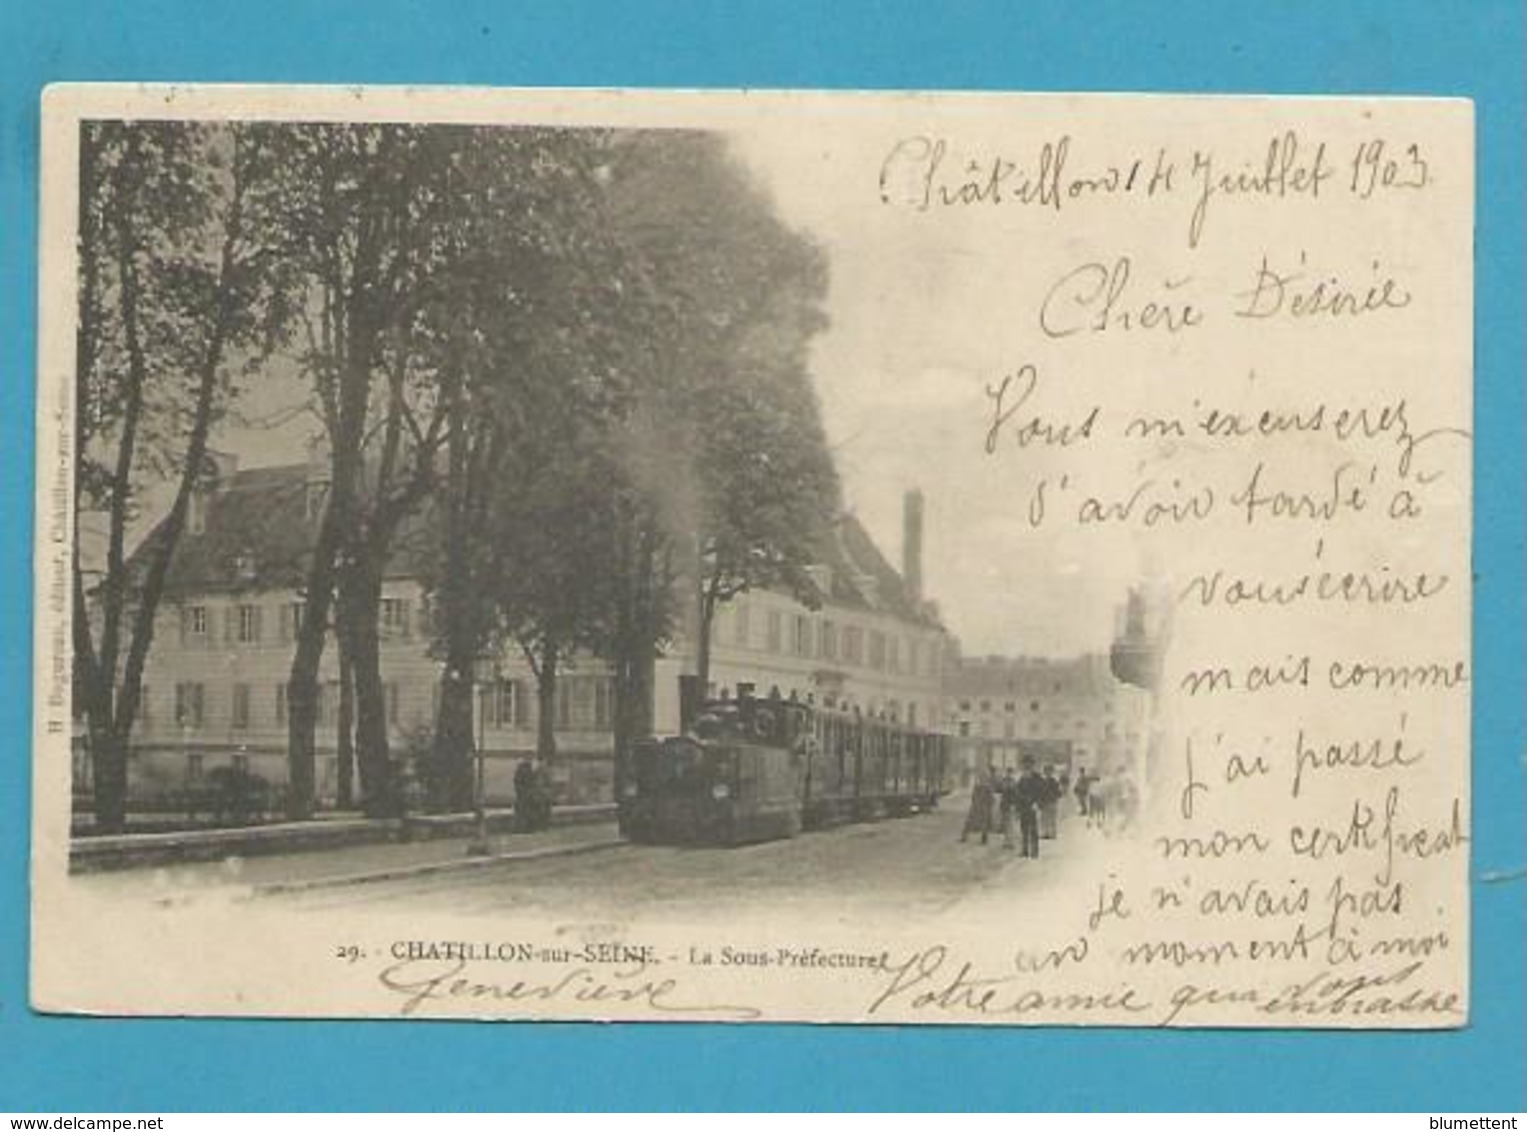 Châtillon 14 Juillet 1903.
Chère Désirée
Vous m'excuserez
d'avoir tardé à
vous écrire
mais comme
j'ai passé
mon certificat
je n'avais pas
un moment à moi
Votre amie qui vous
embrasse
Geneviève
29. - CHATILLON-sur-SEINE. - La Sous-Préfecture
H. Bogureau, éditeur, Châtillon-sur-Seine
www.delcampe.net
blumettent